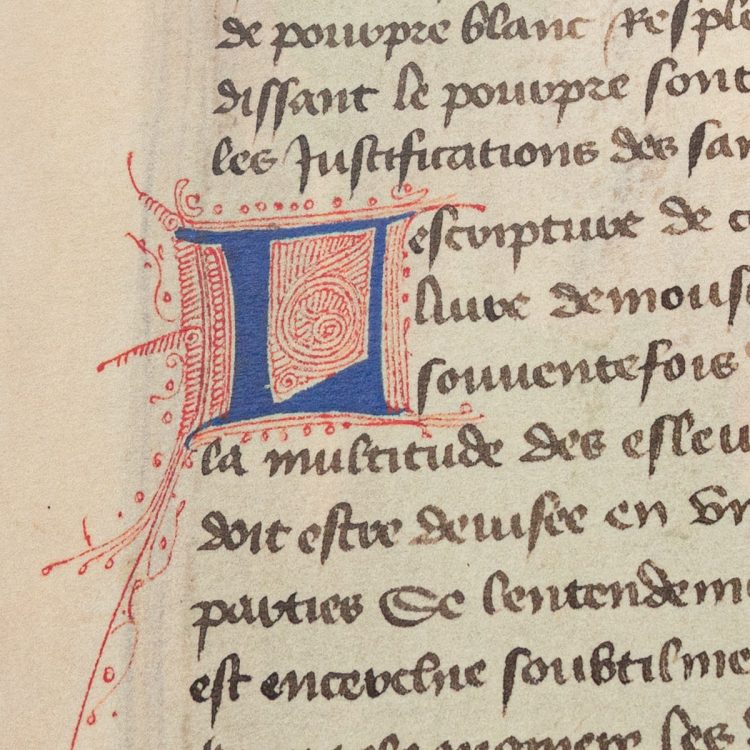 de pourpre blanc Resple
dissant le pourpre sont
les Justifications des sai
Lescripture de c
liure demoust
souuentefois
la multitude des esleu
doit estre deuisee en vn
parties Se lentendem
est encerchie soubtilme